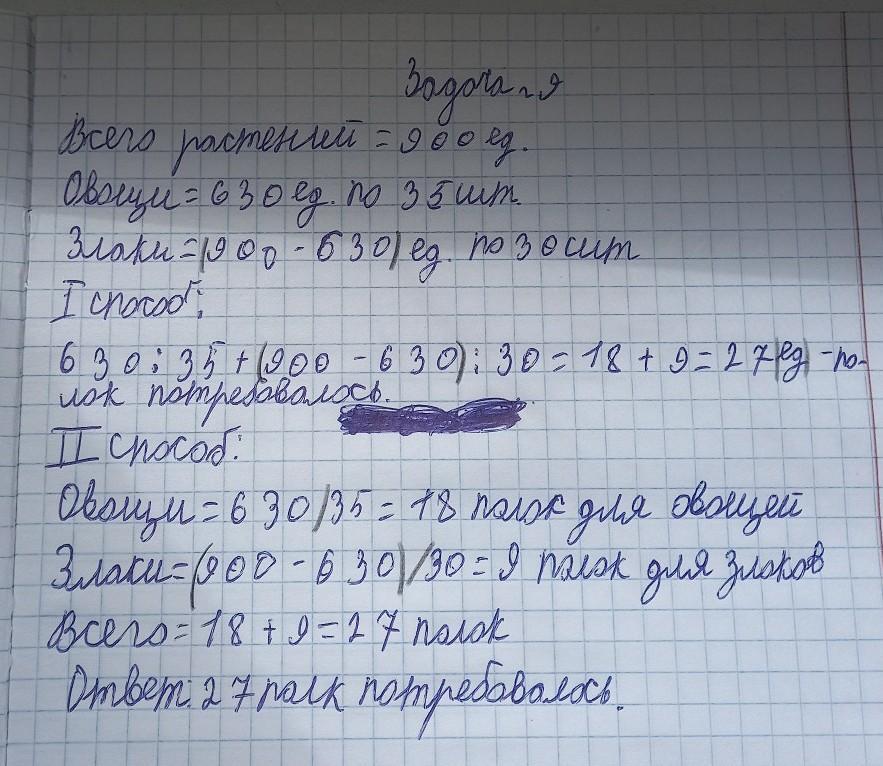 Задача 9
Всего растений = 900 ед.
Овощи = 630 ед. по 35 шт.
Злаки = (900 - 630) ед. по 30 шт
I способ:
630 : 35 + (900 - 630) : 30 = 18 + 9 = 27 (ед) - по-
лок потребовалось.
II способ:
Овощи = 630/35 = 18 полок для овощей
Злаки = (900 - 630)/30 = 9 полок для злаков
Всего = 18 + 9 = 27 полок
Ответ: 27 палк потребовалось.